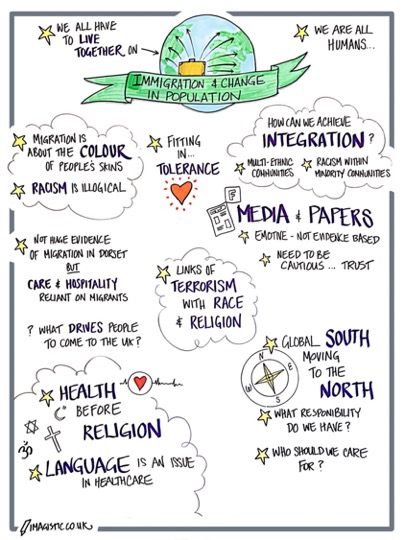 WE ALL HAVE
TO LIVE
TOGETHER ON
WE ARE ALL
HUMANS...
IMMIGRATION & CHANGE
IN POPULATION
MIGRATION IS
ABOUT THE COLOUR
OF PEOPLE'S SKINS
RACISM IS ILLOGICAL
FITTING
IN...
TOLERANCE
HOW CAN WE ACHIEVE
INTEGRATION ?
MULTI-ETHNIC
COMMUNITIES
RACISM WITHIN
MINORITY COMMUNITIES
F
MEDIA & PAPERS
EMOTIVE - NOT EVIDENCE BASED
NEED TO BE
CAUTIOUS ... TRUST
NOT HUGE EVIDENCE
OF MIGRATION IN DORSET
BUT
CARE & HOSPITALITY
RELIANT ON MIGRANTS
? WHAT DRIVES PEOPLE
TO COME TO THE UK?
LINKS OF
TERRORISM
WITH RACE
& RELIGION
GLOBAL SOUTH
MOVING
TO THE
NORTH
N
E
S
W
WHAT RESPONIBILITY
DO WE HAVE?
WHO SHOULD WE CARE
FOR ?
HEALTH
BEFORE
RELIGION
ॐ
LANGUAGE IS AN ISSUE
IN HEALTHCARE
IMAGISTIC.CO.UK